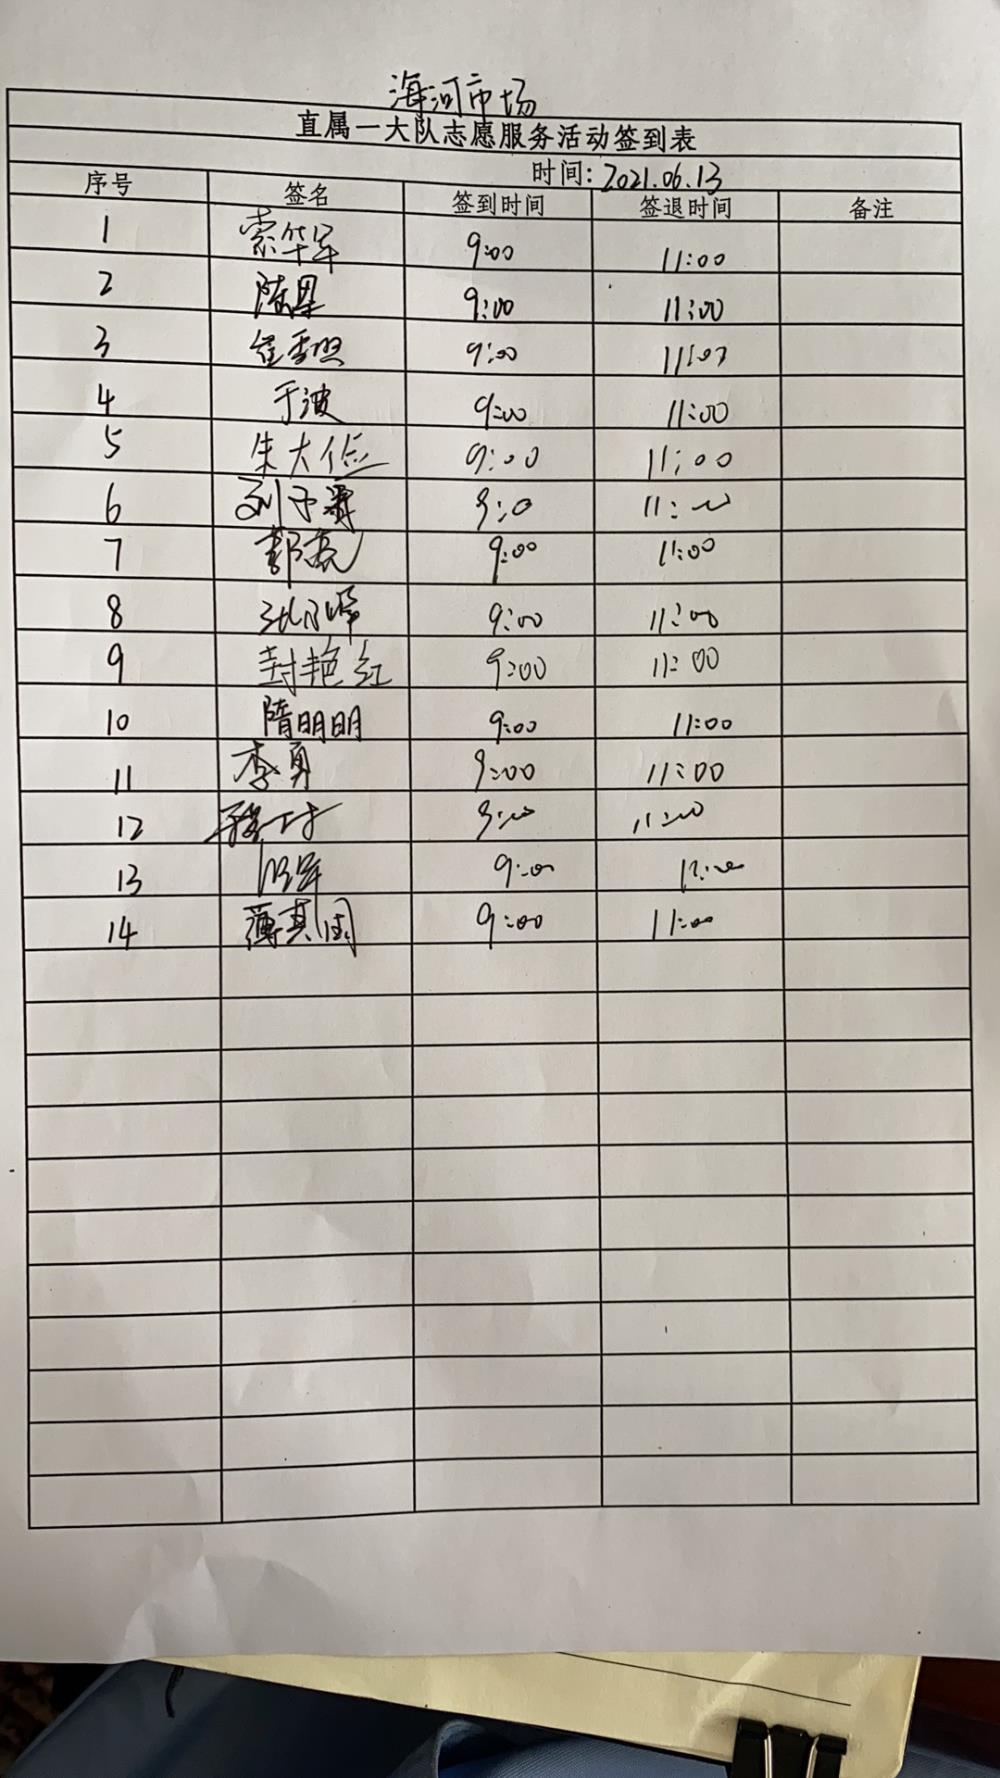 海河市场
直属一大队志愿服务活动签到表
时间: 2021.06.13
序号 签名 签到时间 签退时间 备注
1 索华军 9:00 11:00
2 陈果 9:00 11:00
3 9:00 11:00
4 于波 9:00 11:00
5 朱大俭 9:00 11:00
6 刘子 9:0 11:00
7 郭亮 9:00 11:00
8 9:00 11:00
9 封艳红 9:00 11:00
10 隋明明 9:00 11:00
11 李勇 9:00 11:00
12 9:00 11:00
13 9:00 11:00
14 薄其国 9:00 11:00